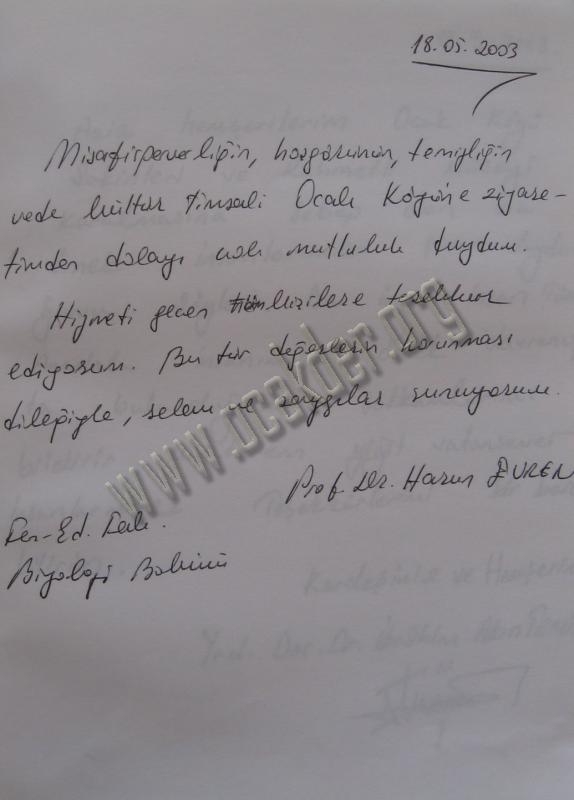 18.05.2003
Misafirperverliğin, hoşgörünün, temizliğin
vede kültür timsali Ocak Köyüne ziyare-
timden dolayı çok mutluluk duydum.
Hizmeti geçen kişilere teşekkür
ediyorum. Bu tür değerlerin korunması
dileğiyle, selam ve saygılar sunuyorum.
Prof. Dr. Harun
Fen-Ed. Fak.
Biyoloji Bölümü
www.ocakder.org